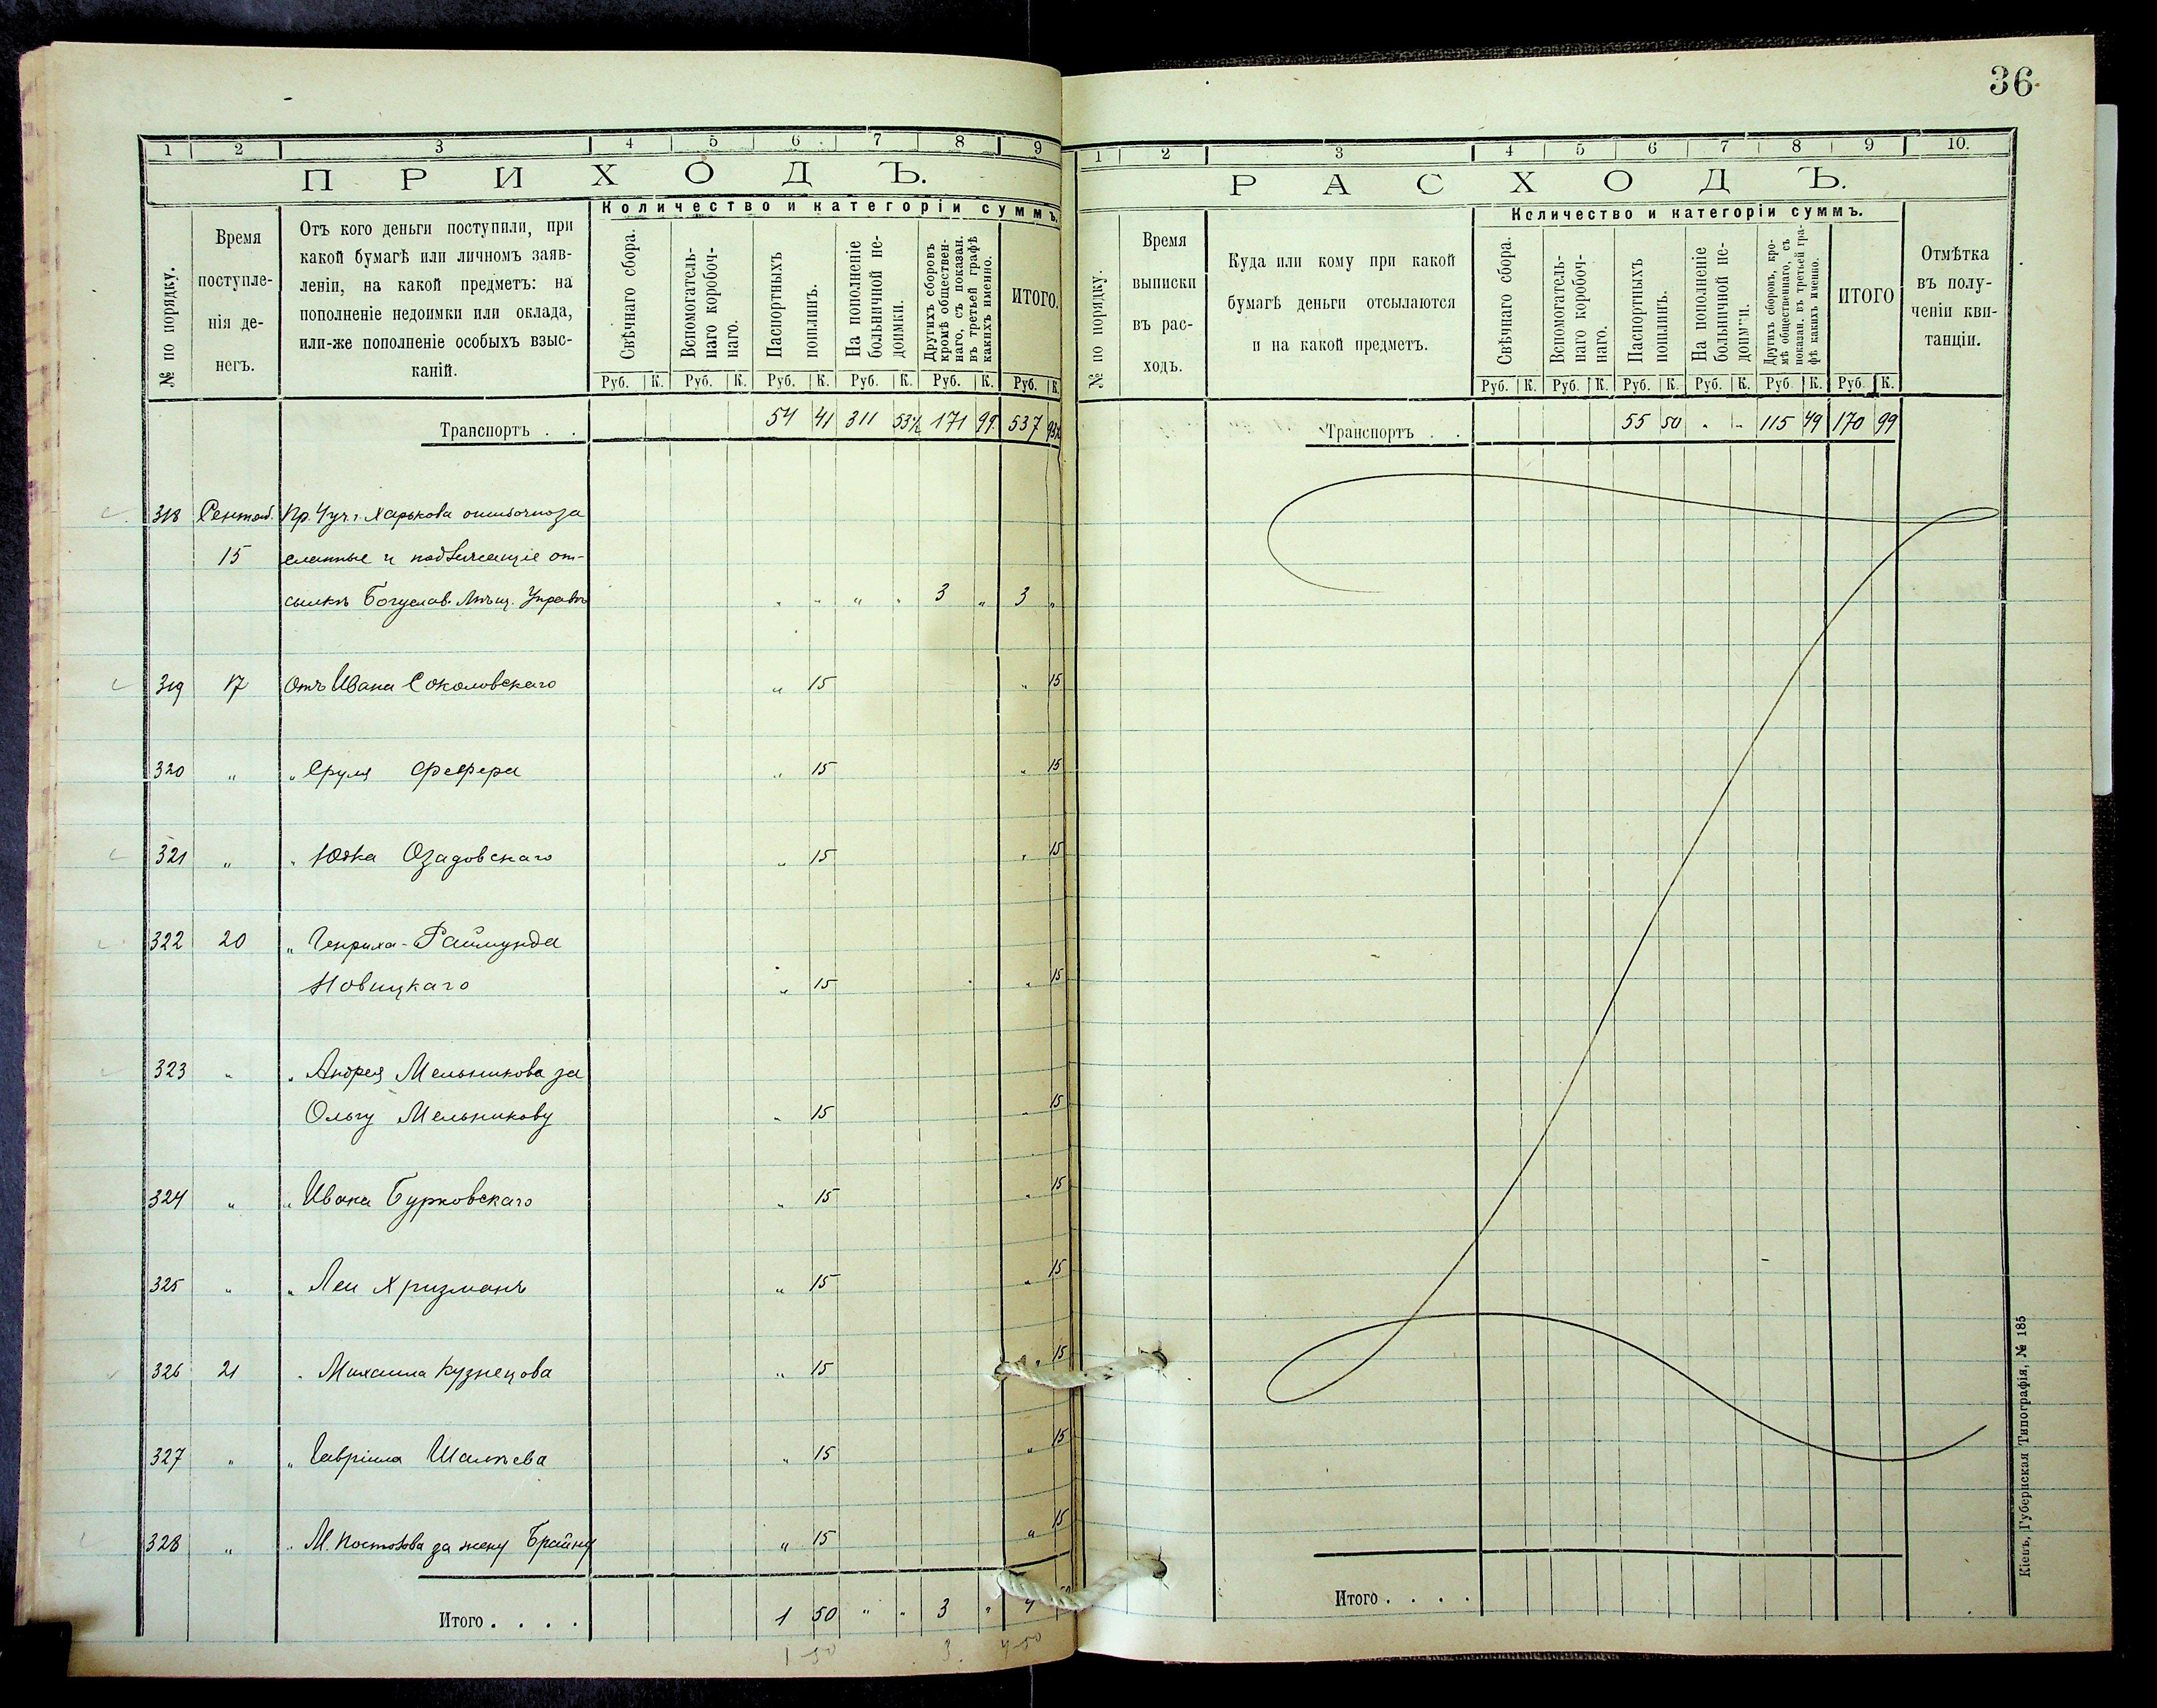 36.
1 2 3 4 5 6 7 8 9
ПРИХОДЪ.
№ по порядку.
Время поступленія денегъ.
Отъ кого деньги поступили, при
какой бумагѣ или личномъ заяв-
леніи, на какой предметъ: на
пополненіе недоимки или оклада,
или-же пополненіе особыхъ взыс-
каній.
Количество и категоріи суммъ.
Свѣчнаго сбора.
Вспомогатель-
наго коробоч-
наго.
Паспортныхъ
пошлинъ.
На пополненіе
больничной не-
доимки.
Другихъ сборовъ
кромѣ обществен-
наго, съ показан.
въ третьей графѣ
какихъ именно.
ИТОГО.
Руб. К. Руб. К. Руб. К. Руб. К. Руб. К. Руб. К.
Транспортъ . . 54 41 311 53½ 171 99 537 93½
318 Сентяб. Пр. Харькова ошибочно за
15 сланные и подлежащіе от-
сылкѣ Богуслав. Мѣщ. Управѣ " " " " 3 " 3 "
319 17 Отъ Ивана Соколовскаго " 15 " 15
320 " " Сруля Фефера " 15 " 15
321 " " Юдка Озадовскаго " 15 " 15
322 20 " Генриха-Раймунда
Новицкаго " 15 " 15
323 " " Андрея Мельникова за
Ольгу Мельникову " 15 " 15
324 " " Ивана Бурковскаго " 15 " 15
325 " " Леи Хризманъ " 15 " 15
326 21 " Михаила Кузнецова " 15 " 15
327 " " Гавріила " 15 " 15
328 " " М. за жену Брайну " 15 " 15
Итого . . . . 1 50 " " 3 " 4
1 50 3. 4 50
1 2 3 4 5 6 7 8 9 10.
РАСХОДЪ.
№ по порядку.
Время
выписки
въ рас-
ходъ.
Куда или кому при какой
бумагѣ деньги отсылаются
и на какой предметъ.
Количество и категоріи суммъ.
Свѣчнаго сбора.
Вспомогатель-
наго коробоч-
наго.
Паспортныхъ
пошлинъ.
На пополненіе
больничной не-
доимки.
Другихъ сборовъ, кро-
мѣ общественнаго, съ
показан. въ третьей гра-
фѣ какихъ именно.
ИТОГО
Отмѣтка
въ полу-
ченіи кви-
танціи.
Руб. К. Руб. К. Руб. К. Руб. К. Руб. К. Руб. К.
Транспортъ . . 55 50 " " 115 49 170 99
Итого . . . .
Кіевъ, Губернская Типографія, № 185